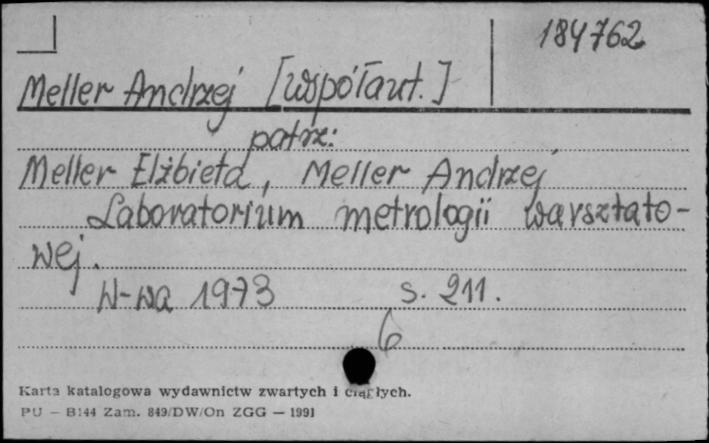 184762
Meller Andrzej [współaut.]
patrz:
Meller Elżbieta, Meller Andrzej
Laboratorium metrologii warsztato-
wej.
W-wa 1973 s. 211.
6
Karta katalogowa wydawnictw zwartych i ciągłych.
PU — B144 Zam. 849/DW/On ZGG — 1991